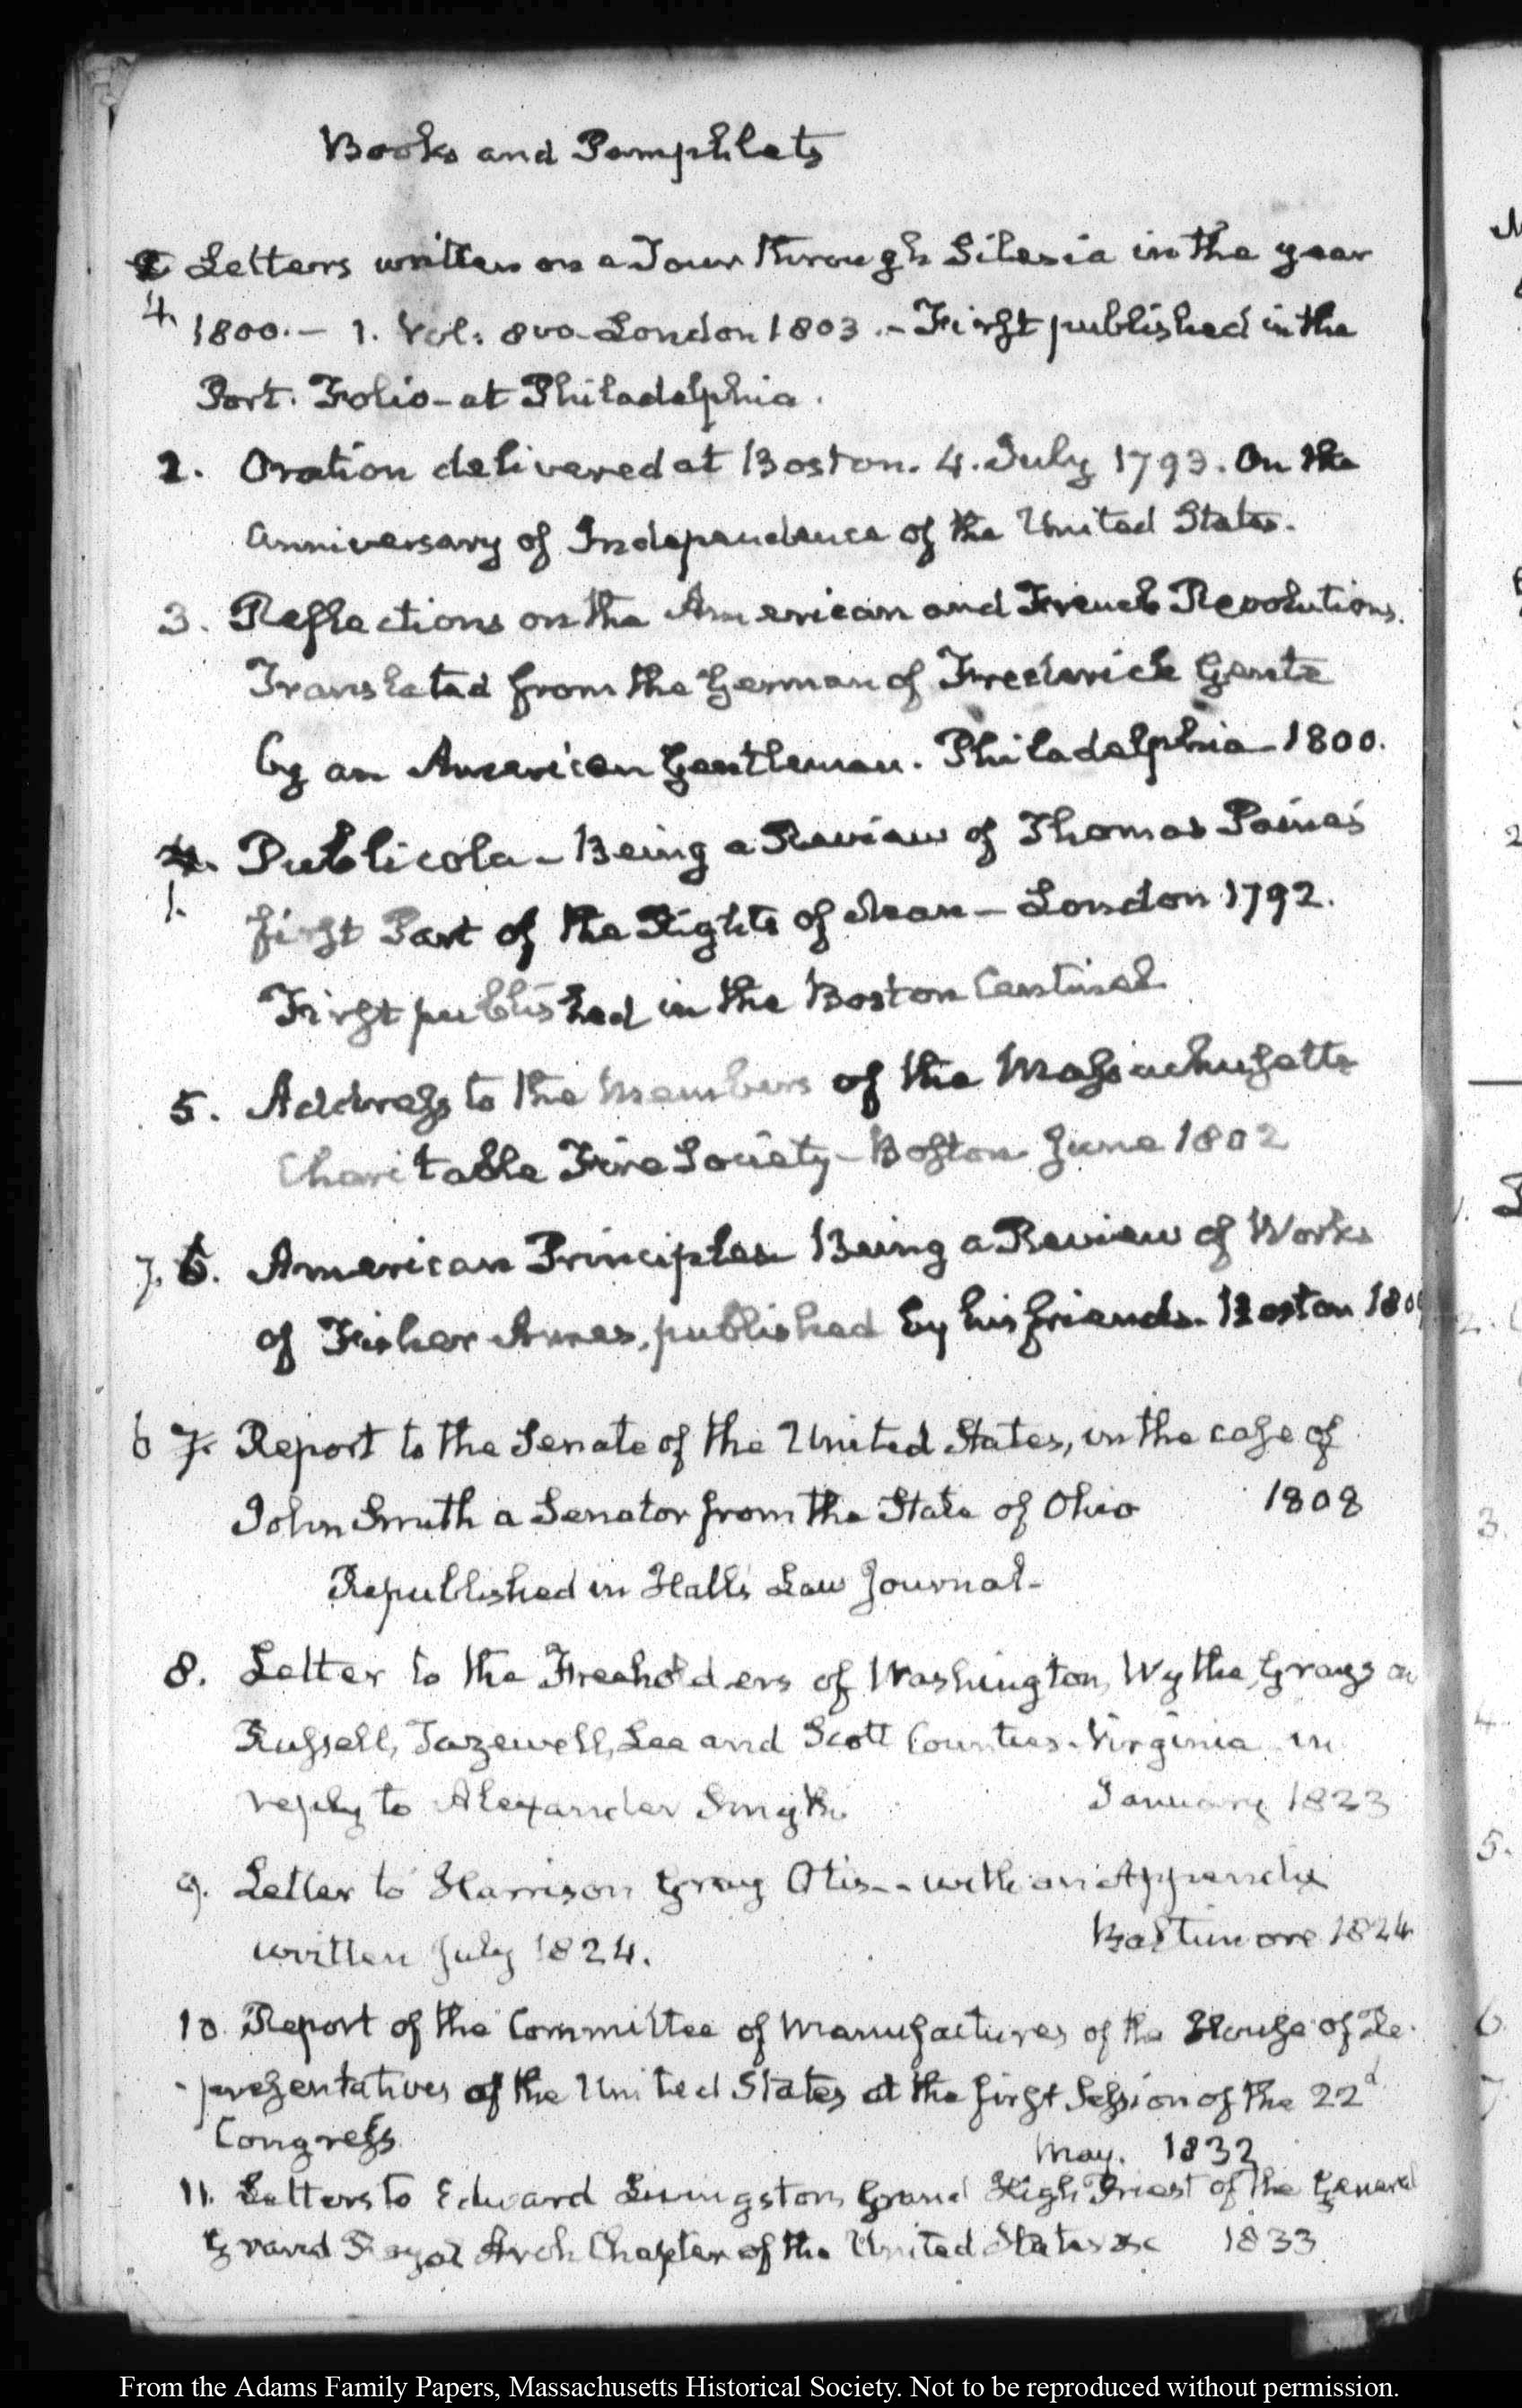 Books and Pamphlets
Letters written on a Tour through Silesia in the year
4
1800.— 1. Vol: 8vo London 1803.— First published in the
Port. Folio—at Philadelphia.
2. Oration delivered at Boston. 4. July 1793. On the
Anniversary of Independence of the United States.
3. Reflections on the American and French Revolutions.
Translated from the German of Frederick Gentz
by an American Gentleman. Philadelphia—1800.
4. Publicola—Being a Review of Thomas Paine's
1.
first Part of the Rights of Man—London 1792.
First published in the Boston Centinel
5. Address to the Members of the Massachusetts
Charitable Fire Society—Boston June 1802
7. 6. American Principles Being a Review of Works
of Fisher Ames, published by his friends. Boston 180
6 7. Report to the Senate of the United States, in the case of
John Smith a Senator from the State of Ohio 1808
Republished in Hall's Law Journal—
8. Letter to the Freeholders of Washington, Wythe, Grayson
Russell, Tazewell, Lee and Scott Counties—Virginia in
reply to Alexander Smyth. January 1823
9. Letter to Harrison Gray Otis—with an Appendix
Baltimore 1824
written July 1824.
10. Report of the Committee of Manufactures of the House of Re-
-presentatives of the United States at the first Session of the 22d
Congress May. 1832
11. Letters to Edward Livingston, Grand High Priest of the General
Grand Royal Arch Chapter of the United States &c 1833
2
3.
4.
5.
6.
7.
From the Adams Family Papers, Massachusetts Historical Society. Not to be reproduced without permission.